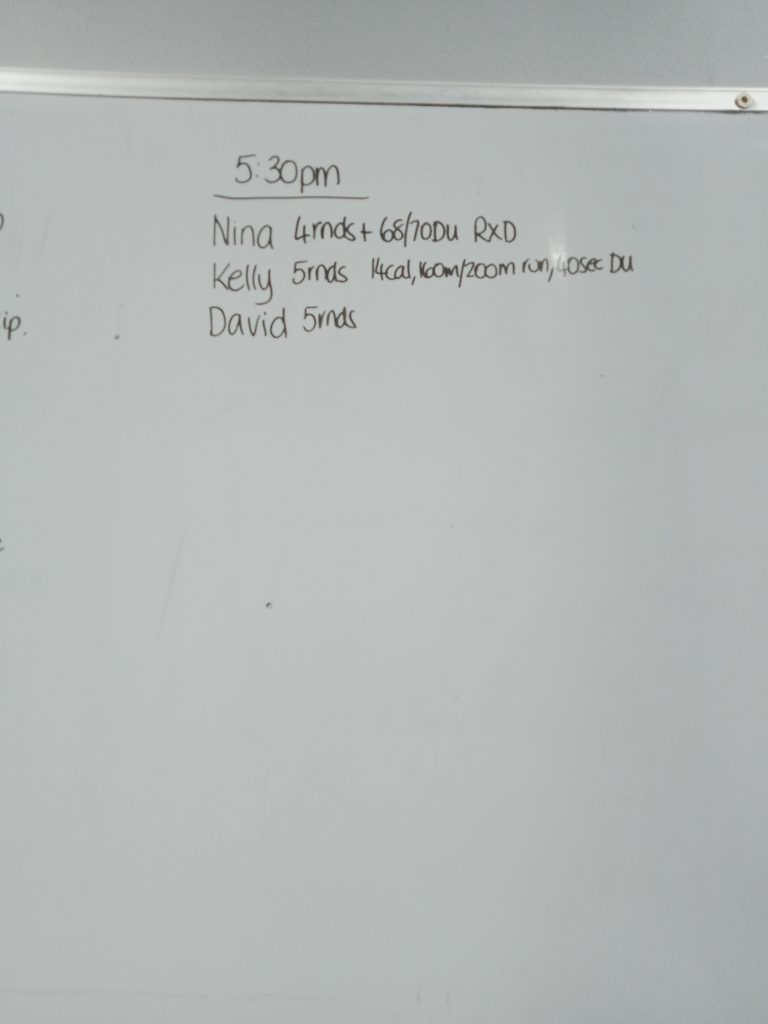 5:30pm
Nina 4rnds + 68/70DU RXD
Kelly 5rnds 14cal, 160m/200m run, 40sec DU
ip.
David 5rnds